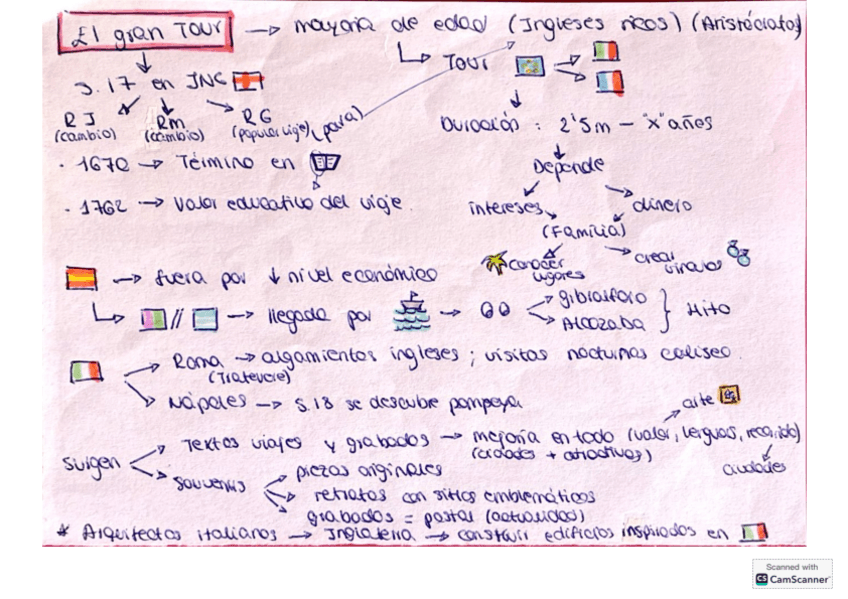 El gran TOUR → mayoría de edad (Ingleses ricos) (Aristócratas)
↳ TOUR
S.17 en ING
RJ (cambio) RM (cambio) RG (popular viaje) (para)
Duración : 2'5m - "x" años
· 1670 → Término en
Depende
· 1762 → Valor educativo del viaje.
intereses dinero
(Familia)
conocer lugares crear vínculos
→ fuera por ↓ nivel económico
↳ // → llegada por → Gibralforo
Alcazaba } Hito
Roma → alojamientos ingleses ; visitas nocturnas coliseo.
(Trastevere)
Nápoles → S.18 se descubre pompeya
arte
surgen Textos viajes y grabados → mejoría en todo (valor, lenguas, recorrido)
(ciudades + atractivos) ciudades
souvenirs piezas originales
retratos con sitios emblemáticos
grabados = postal (actualidad)
* Arquitectos italianos → Inglaterra → construir edificios inspirados en
Scanned with
CS CamScanner